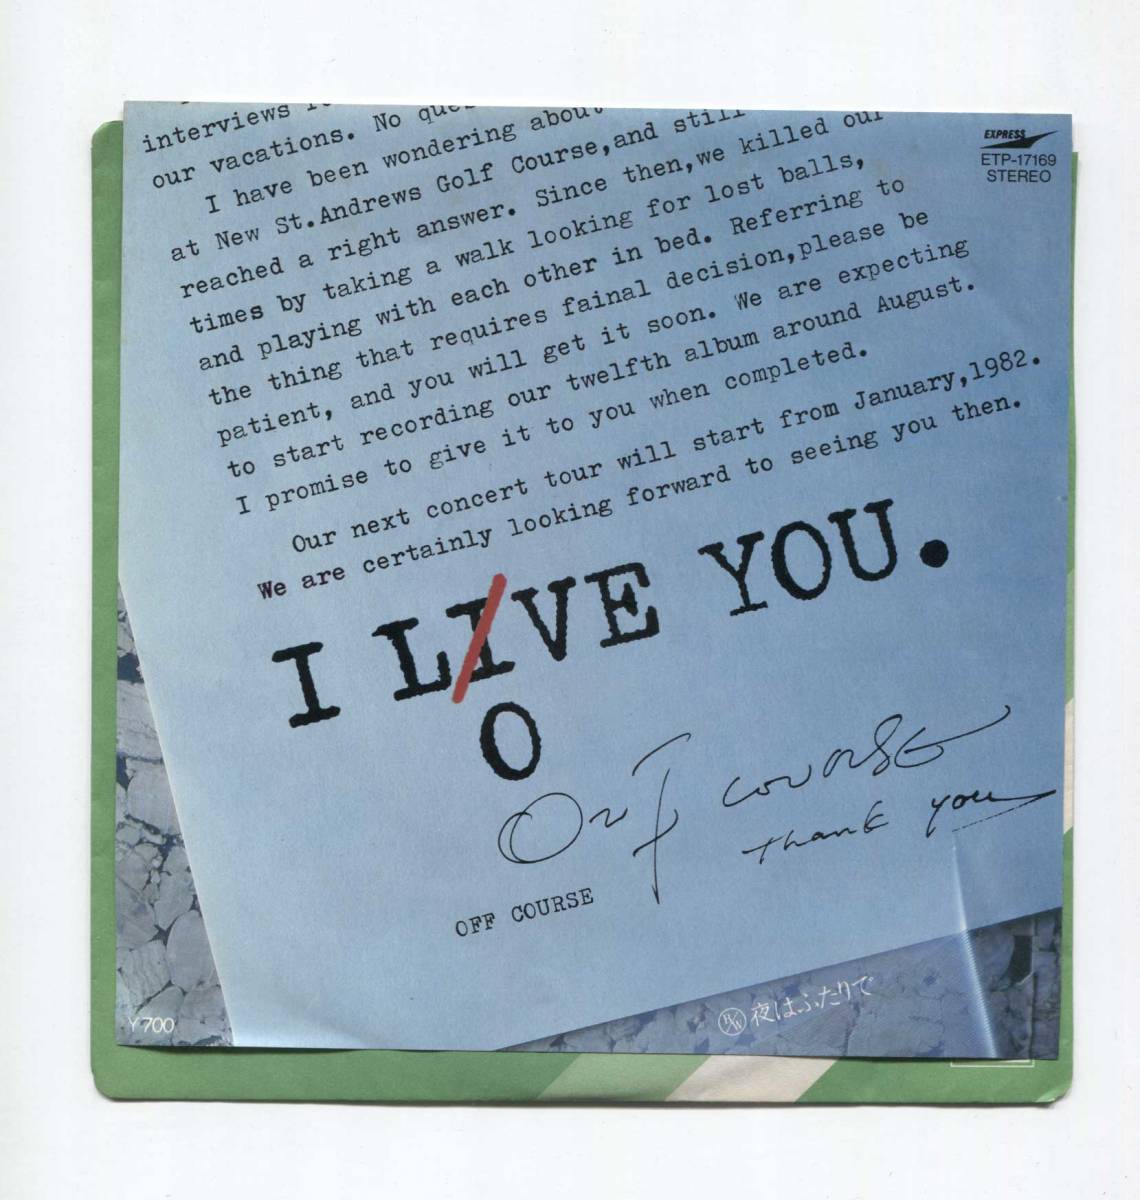 interviews
our vacations. No
I have been wondering about
at New St.Andrews Golf Course,and still
reached a right answer. Since then,we killed our
times by taking a walk looking for lost balls,
and playing with each other in bed. Referring to
the thing that requires fainal decision,please be
patient, and you will get it soon. We are expecting
to start recording our twelfth album around August.
I promise to give it to you when completed.
Our next concert tour will start from January,1982.
We are certainly looking forward to seeing you then.
I LIVE YOU.
O
Off course
thank you
OFF COURSE
EXPRESS
ETP-17169
STEREO
B/W 夜はふたりで
Y700